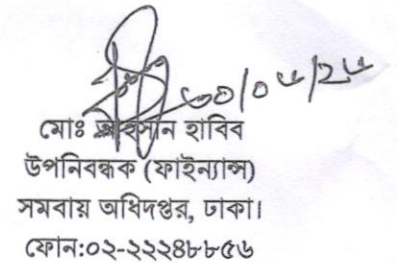 ৩০/০৬/২৫
মোঃ আহসান হাবিব
উপনিবন্ধক (ফাইন্যান্স)
সমবায় অধিদপ্তর, ঢাকা।
ফোন:০২-২২২৪৮৮৫৬